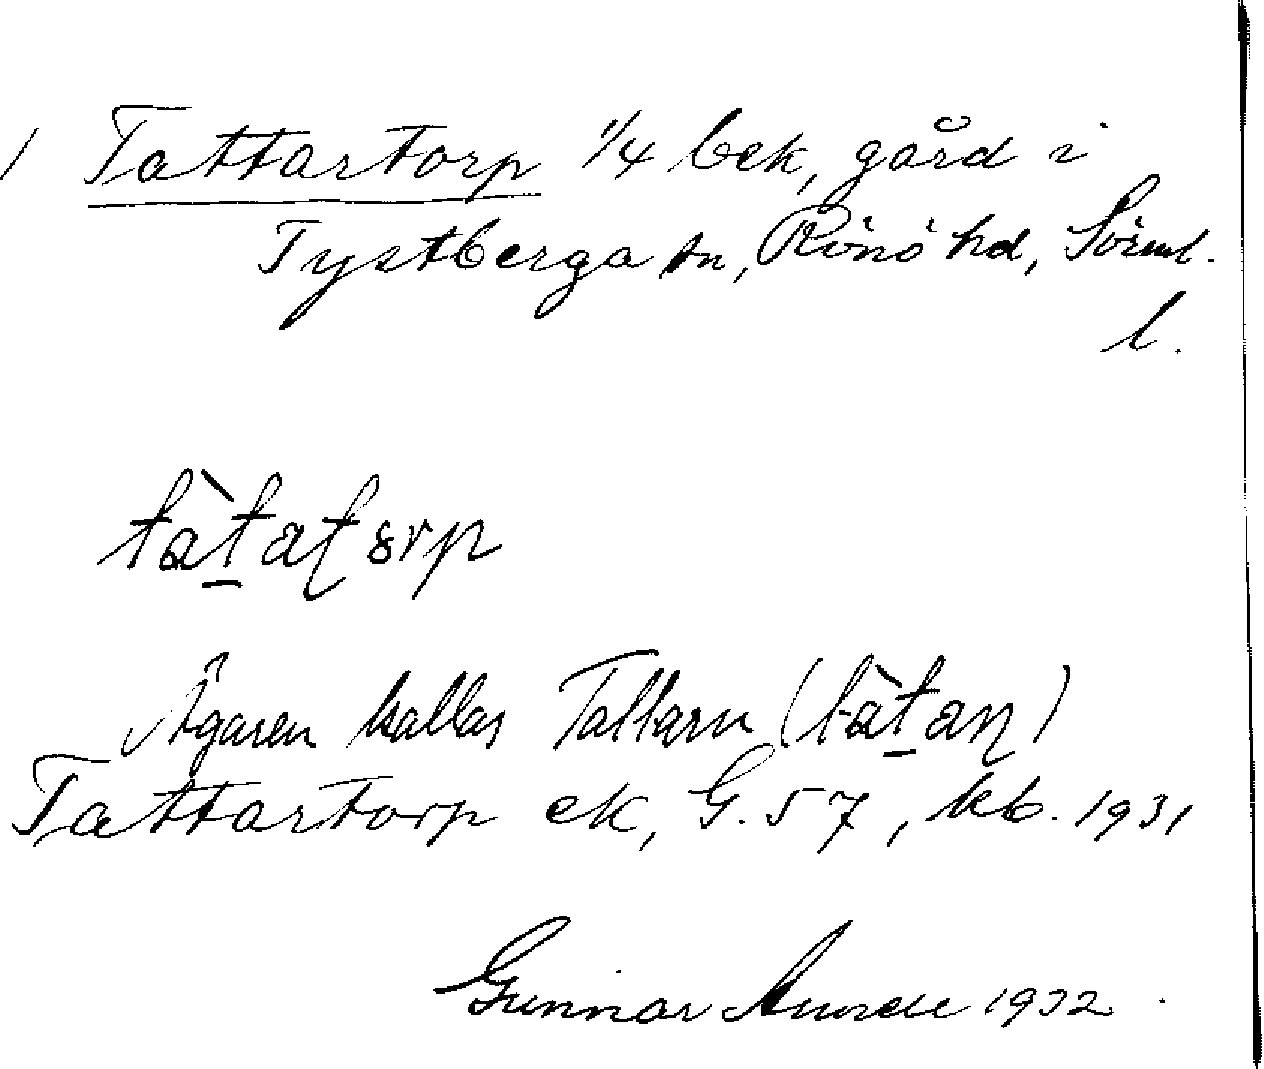 / Tattartorp 1/4 bek, gård i
Tystberga sn, Rönö hd, Söml.
l.
tàt̠atorp
Ägaren kallas Tattarn (tàt̠an)
Tattartorp ek, G. 57, kb. 1931
Gunnar 1932.